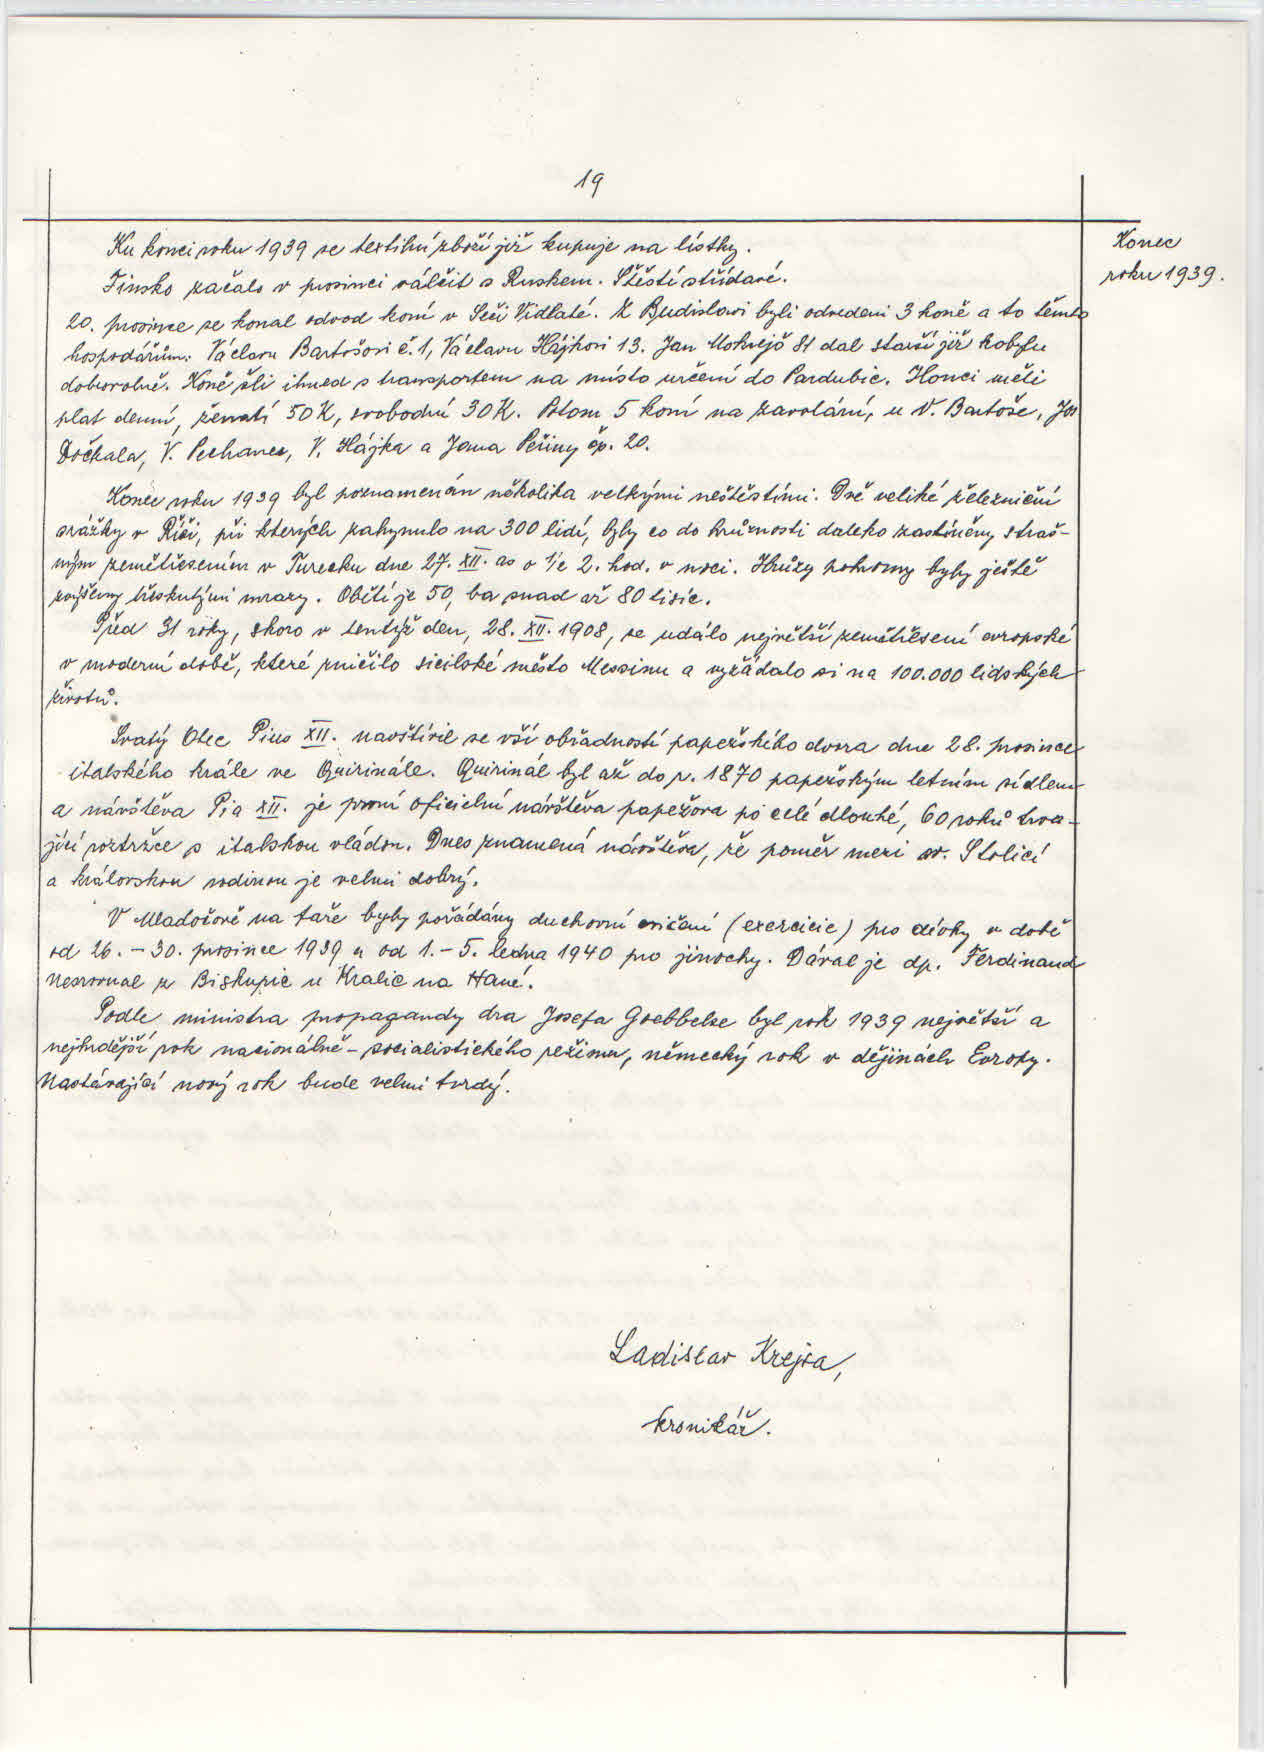 19
Konec
roku 1939.
Ku konci roku 1939 se textilní zboží již kupuje na lístky.
Finsko začalo v prosinci válčit s Ruskem. Štěstí střídavé.
20. prosince se konal odvod koní v Seči Vidlaté. Z Budislavi byli odvedeni 3 koně a to těmto
hospodářům: Václavu Bartošovi č. 1, Václavu Hájkovi 13. Jan Mokrejš 81 dal starší již kobylu
dobrovolně. Koně šli ihned s transportem na místo určení do Pardubic. Honci měli
plat denní, ženatí 50 K, svobodní 30 K. Potom 5 koní na zavolání, u V. Bartoše, Jos
Dočkala, V. Pechance, V. Hájka a Jana Peřiny čp. 20.
Konec roku 1939 byl poznamenán několika velkými neštěstími. Dvě veliké železniční
srážky v Říši, při kterých zahynulo na 300 lidí, byly co do hrůznosti daleko zastíněny straš-
ným zemětřesením v Turecku dne 27. XII. as o 1/2 2. hod. v noci. Hrůzy pohromy byly ještě
zvýšeny třeskutými mrazy. Obětí je 50, ba snad až 80 tisíc.
Před 31 roky, skoro v tentýž den, 28. XII. 1908, se událo největší zemětřesení evropské
v moderní době, které zničilo sicilské město Messinu a vyžádalo si na 100.000 lidských
životů.
Svatý Otec Pius XII. navštívil se vší obřadností papežského dvora dne 28. prosince
italského krále ve Quirinále. Quirinál byl až do r. 1870 papežským letním sídlem
a návštěva Pia XII. je první oficielní návštěva papežova po celé dlouhé, 60 roků trva-
jící roztržce s italskou vládou. Dnes znamená návštěva, že poměr mezi sv. Stolicí
a královskou rodinou je velmi dobrý.
V Mladočově na faře byly pořádány duchovní cvičení (exercicie) pro dívky v době
od 26. – 30. prosince 1939 a od 1. – 5. ledna 1940 pro jinochy. Dával je dp. Ferdinand
Nesrovnal z Biskupic u Kralic na Hané.
Podle ministra propagandy dra Josefa Goebbelse byl rok 1939 největší a
nejhrdější rok nacionálně – socialistického režimu, německý rok v dějinách Evropy.
Nastávající nový rok bude velmi tvrdý.
Ladislav Krejsa,
kronikář.